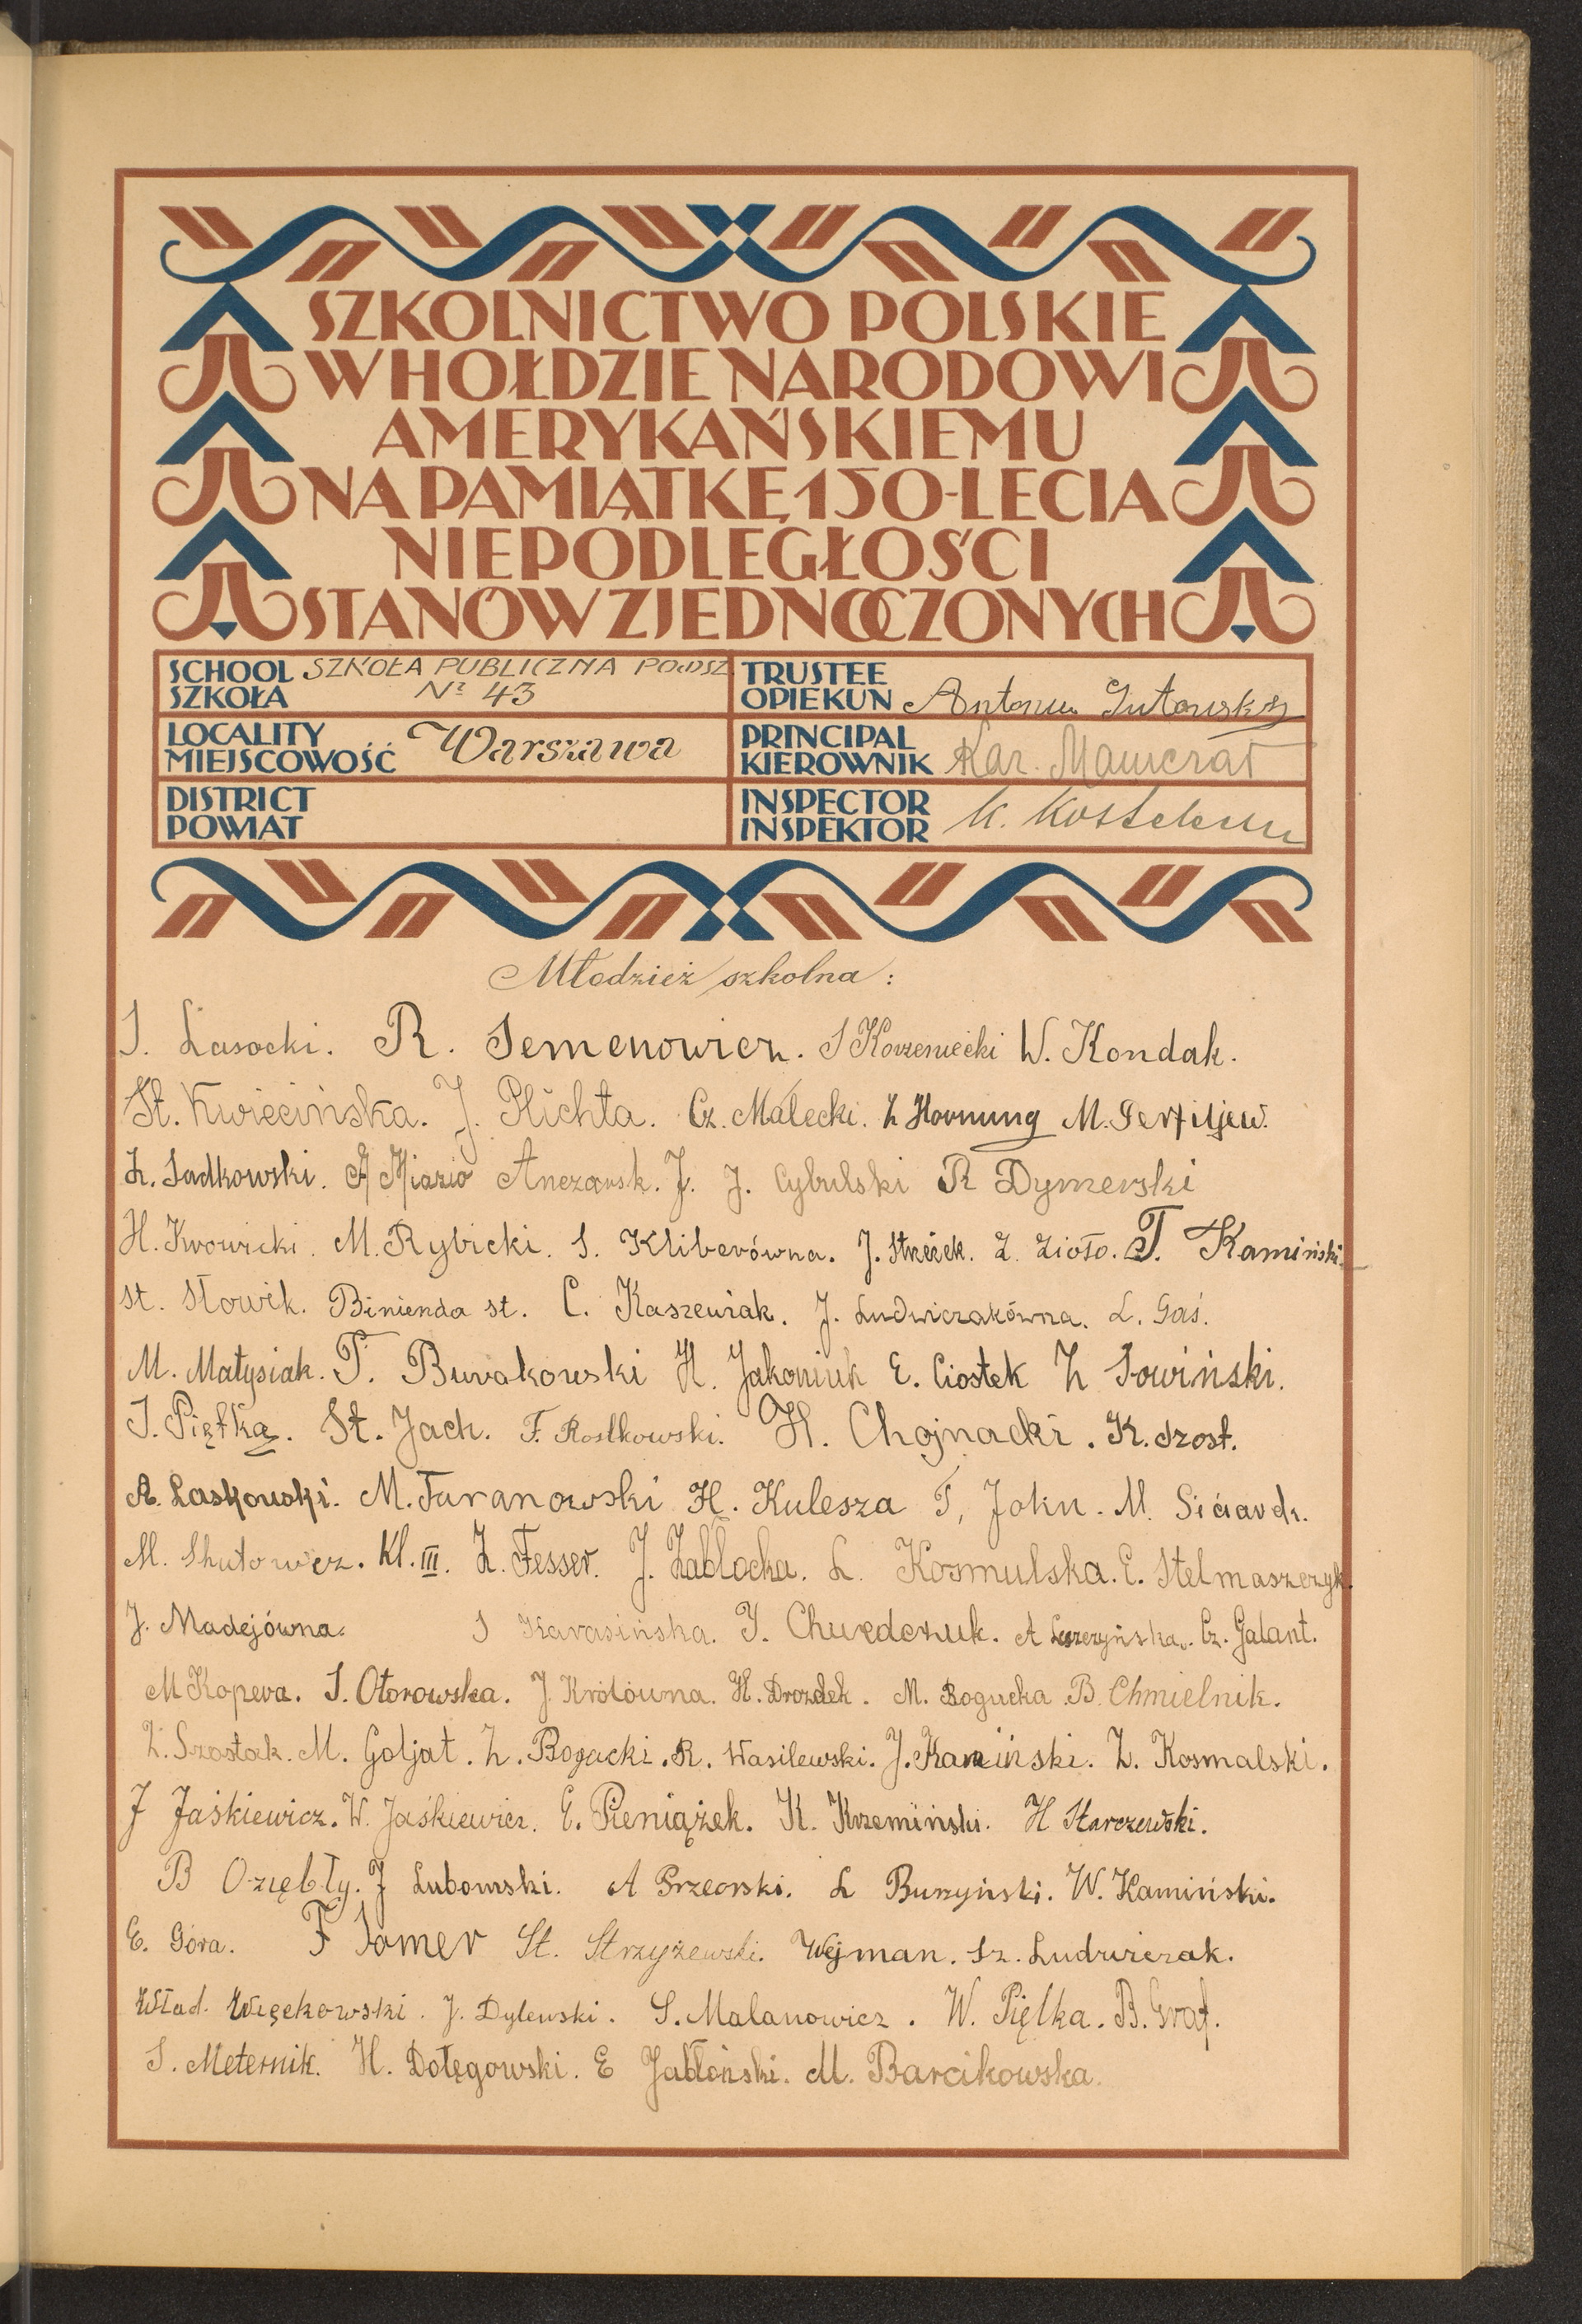 SZKOLNICTWO POLSKIE
W HOŁDZIE NARODOWI
AMERYKAŃSKIEMU
NA PAMIĄTKĘ 150-LECIA
NIEPODLEGŁOŚCI
STANÓW ZJEDNOCZONYCH
SCHOOL SZKOŁA PUBLICZNA POWSZ
SZKOŁA Nr 43
TRUSTEE
OPIEKUN Antoni Gutowski
LOCALITY
MIEJSCOWOŚĆ Warszawa
PRINCIPAL
KIEROWNIK Kar.
DISTRICT
POWIAT
INSPECTOR
INSPEKTOR K.
Młodzież szkolna:
S. Lasocki. R. Semenowicz. S Korzeniecki W. Kondak.
St. Kwiecińska. J. Plichta. Cz. Malecki. Z Hornung M. Perfiljew.
Z. Sadkowski. A Miazio J. J. Cybulski R Dymerski
H. Kwowicki. M. Rybicki. S. Kliberówna. J. Strzżek. Z. Zioło. T. Kamiński
St. Słowik. Binienda st. C. Kaszewiak. J. Ludwiczakówna. L. Gaś.
M. Matysiak. T. Burakowski H. Jakoniuk E. Ciostek Z Sowiński.
J. Piętka. St. Jach. F. Rostkowski. H. Chojnacki. K. Szost.
A. Laskowski. M. Turanowski H. Kulesza T, John. M.
M. Skutowicz. Kl. III. Z. Fesser. J. Zabłocka. L. Kosmulska. E. Stelmaszczyk.
J. Madejówna. S Karasińska. J. Churędczuk. A Leszczyńska. Cz. Galant.
M Kopera. S. Otorowska. J. Królówna. H. Drozdek. M. Bogucka. B. Chmielnik.
Z. Szostak. M. Goljat. Z. Bogacki. R. Wasilewski. J. Kamiński. Z. Kosmalski.
J Jaśkiewicz. W. Jaśkiewicz. E. Pieniążek. K. Krzemiński. H Starczewski.
B Oziębły. J Lubomski. A Przeorski. L Burzyński. W. Kamiński.
E. Góra. F Somer St. Strzyżewski. Wejman. Sz. Ludwiczak.
Wład. Więckowski. J. Dylewski. S. Malanowicz. W. Piętka. B. Graf.
S. Meternik. H. Dołęgowski. E Jabłoński. M. Barcikowska.